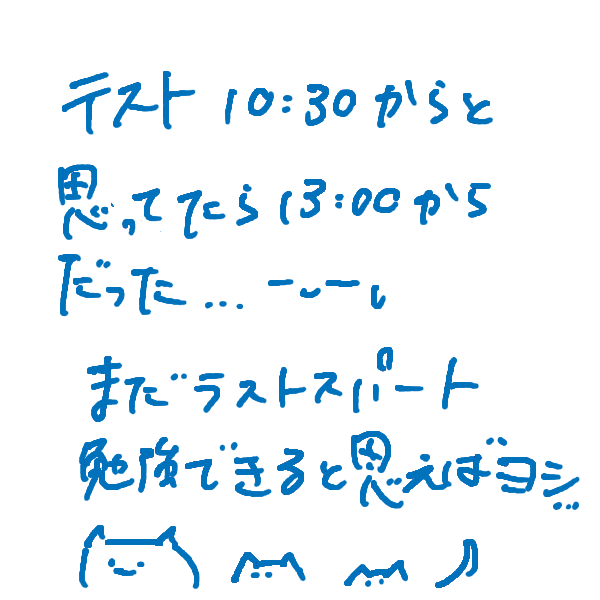 テスト 10:30からと
思ってたら 13:00から
だった...
まだラストスパート
勉強できると思えばヨシ